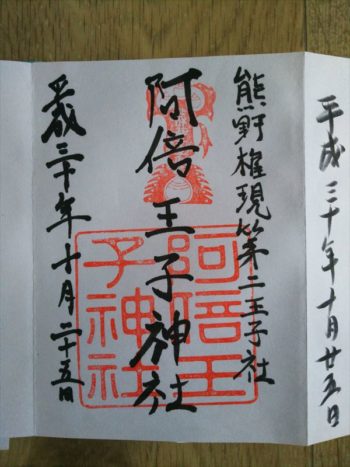 平成三十年十月廿五日
熊野権現第二王子社
阿倍王子神社
平成三十年十月二十五日
阿倍王
子神社